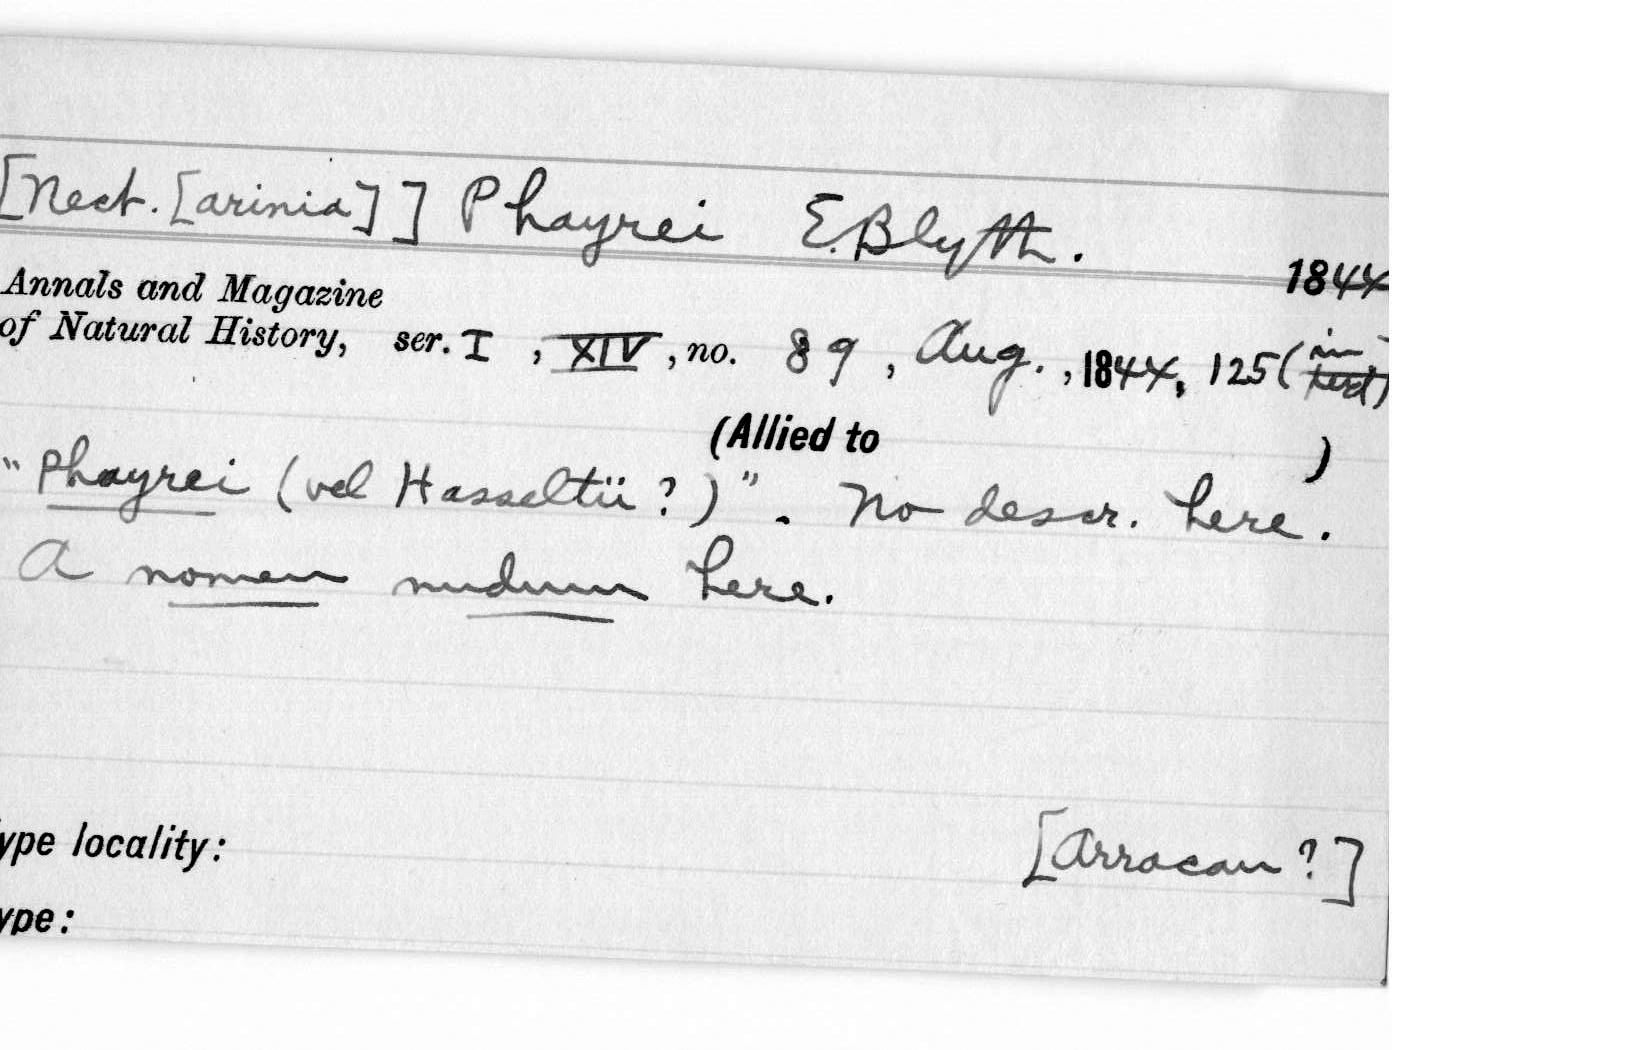 [Nect. [arinia]] Phayrei E. Blyth.
1844
Annals and Magazine
of Natural History, ser. I, XIV, no. 89, Aug., 1844, 125 (in text)
(Allied to )
"Phayrei (vel Hasseltii ?)". No descr. here.
A nomen nudum here.
ype locality: [Arracan ?]
ype: